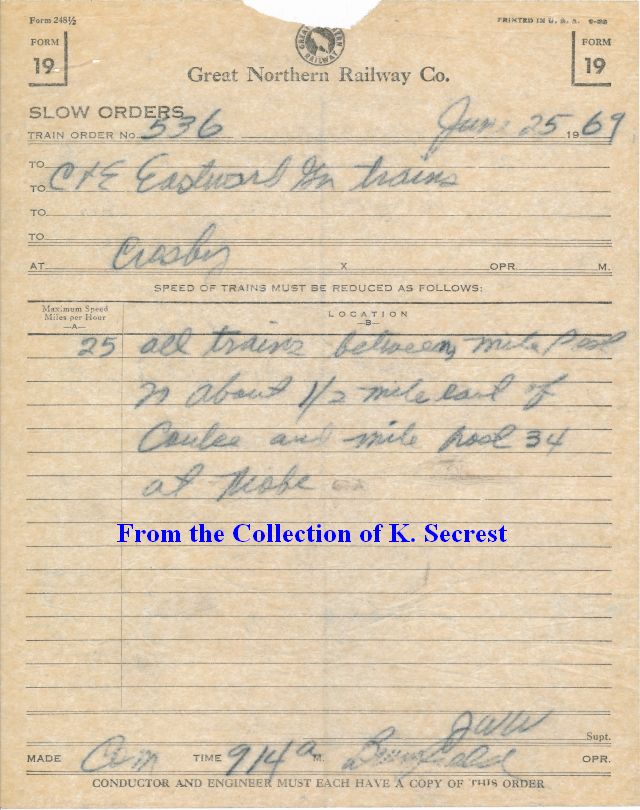 Form 248½
PRINTED IN U. S. A.
FORM
19
FORM
19
GREAT NORTHERN RAILWAY
Great Northern Railway Co.
SLOW ORDERS
TRAIN ORDER No. 536 June 25 1969
TO
TO C+E Eastward Gn trains
TO
TO
AT Crosby X OPR. M.
SPEED OF TRAINS MUST BE REDUCED AS FOLLOWS:
Maximum Speed
Miles per Hour
—A—
LOCATION
—B—
25 all trains between mile Post
about 1/2 mile east of
Coulee and mile post 34
at Niobe
From the Collection of K. Secrest
Supt.
MADE Com TIME 914 a M. OPR.
CONDUCTOR AND ENGINEER MUST EACH HAVE A COPY OF THIS ORDER